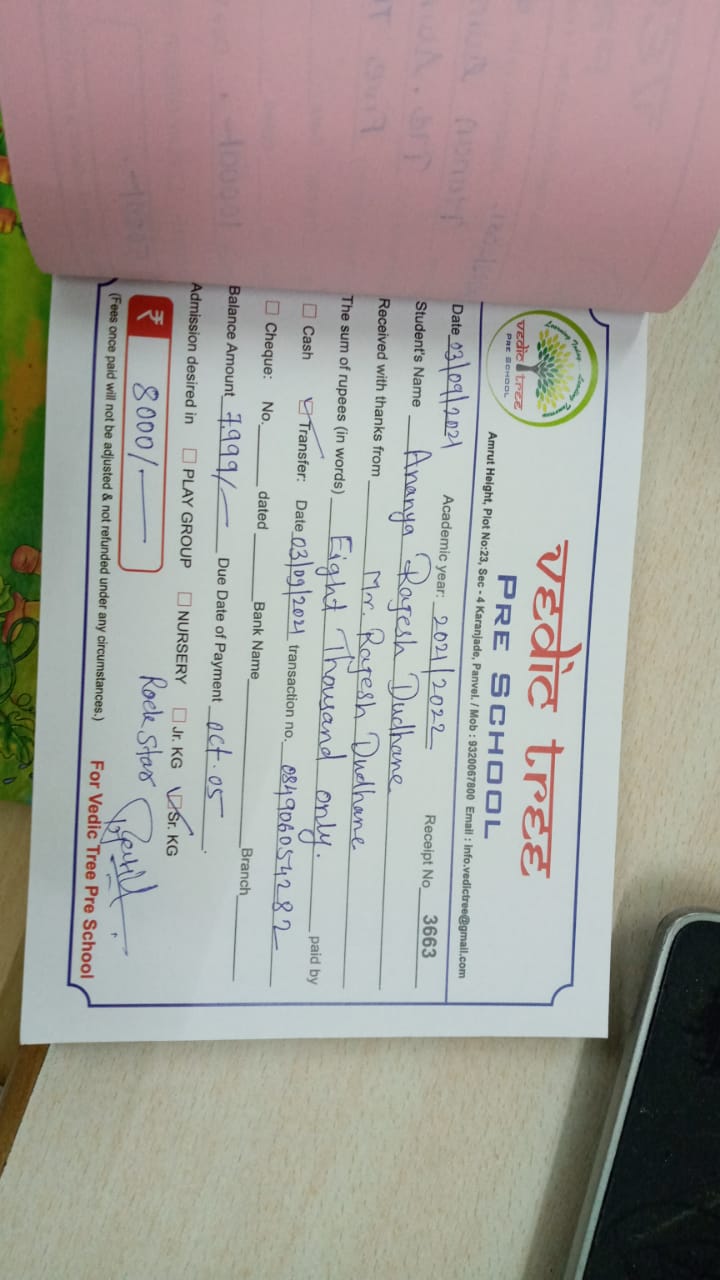 Learning Today... Leading Tomorrow
vedic tree
PRE SCHOOL
vedic tree
PRE SCHOOL
Amrut Height, Plot No:23, Sec - 4 Karanjade, Panvel. / Mob : 9320067800 Email : info.vedictree@gmail.com
Date 03/09/2021 Academic year: 2021/2022 Receipt No 3663
Student's Name Ananya Ragesh Dudhane
Received with thanks from Mr. Ragesh Dudhane
The sum of rupees (in words) Eight Thousand only. paid by
Cash Transfer: Date 03/09/2021 transaction no. 084906054282
Cheque: No. dated Bank Name Branch
Balance Amount 7,999/- Due Date of Payment oct. 05
Admission desired in PLAY GROUP NURSERY Jr. KG Sr. KG
₹ 8000/- Rock Star
(Fees once paid will not be adjusted & not refunded under any circumstances.) For Vedic Tree Pre School